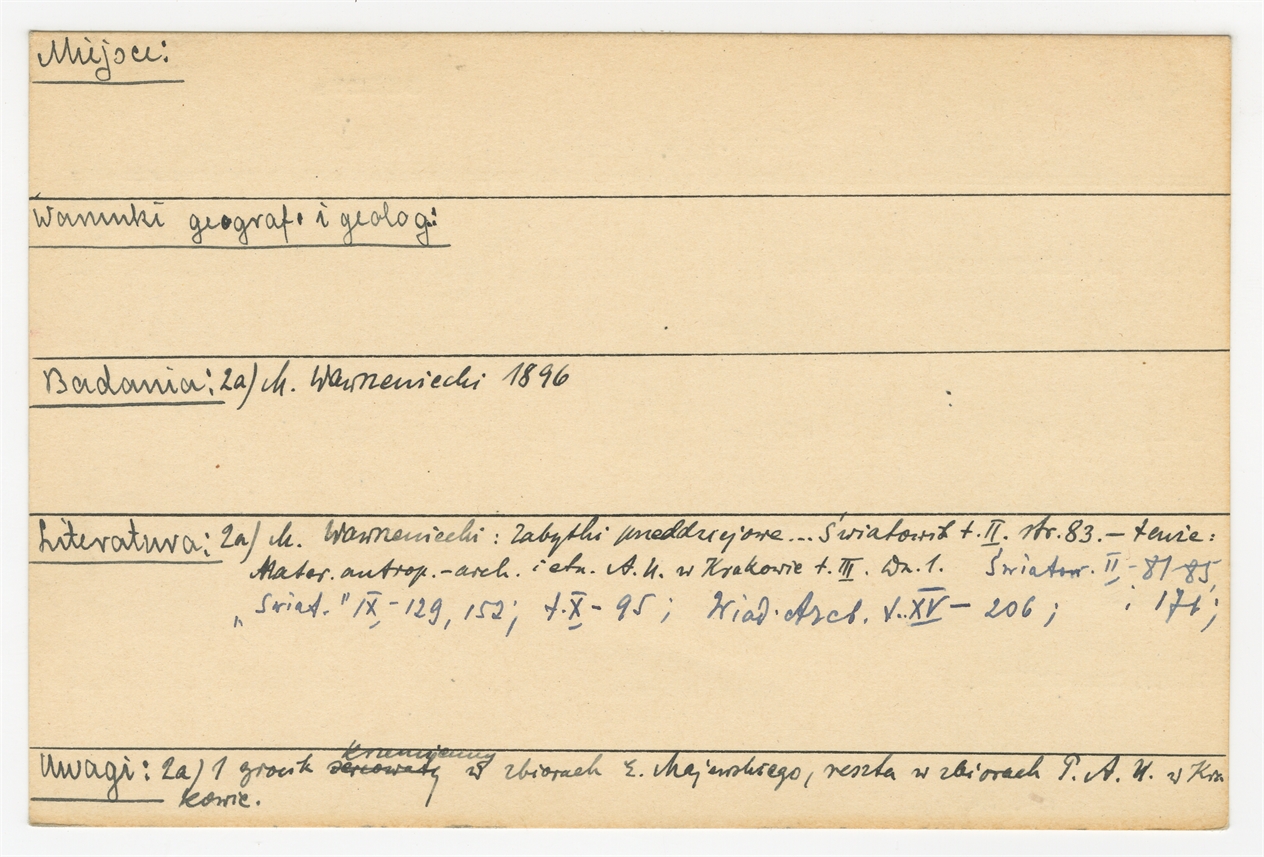 Miejsce:
Warunki geograf. i geolog.:
Badania: 2a) M. Wawrzeniecki 1896
Literatura: 2a) M. Wawrzeniecki: Zabytki przeddziejowe... Światowit t. II. str. 83. – tenże:
Mater. antrop.-arch. i etn. A. U. w Krakowie t. III. Dz. 1. Światow. II, - 81-85,
i 171;
„Świat." IX, - 129, 152; t. X - 95; Wiad. Arch. t. XV - 206;
krzemienny
Uwagi: 2a) 1 grocik sercowaty w zbiorach E. Majewskiego, reszta w zbiorach P. A. U. w Kra
kowie.